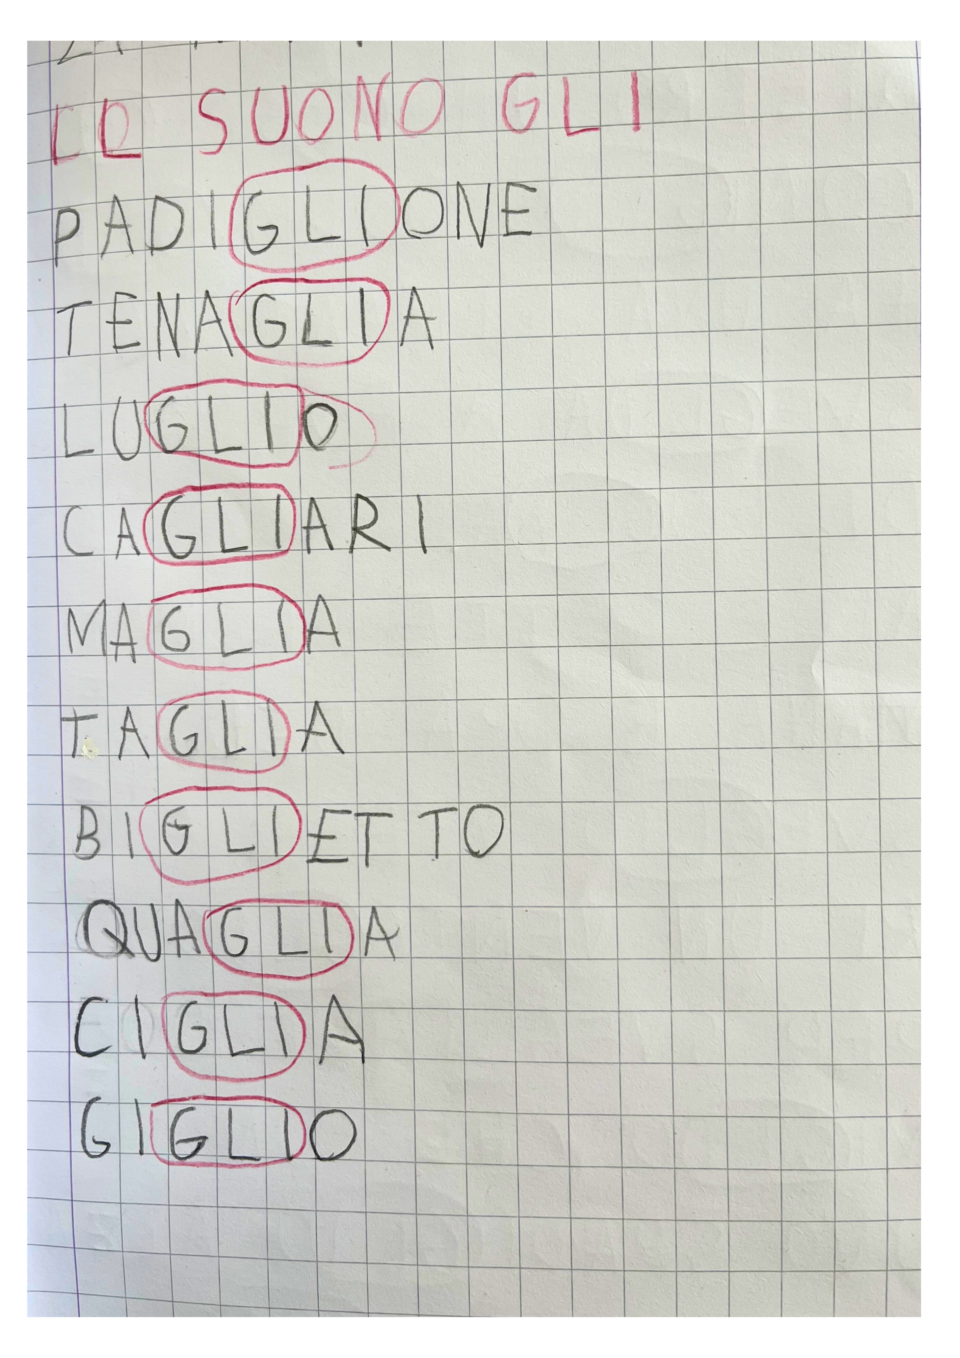 LO SUONO GLI
PADIGLIONE
TENAGLIA
LUGLIO
CAGLIARI
MAGLIA
TAGLIA
BIGLIETTO
QUAGLIA
CIGLIA
GIGLIO